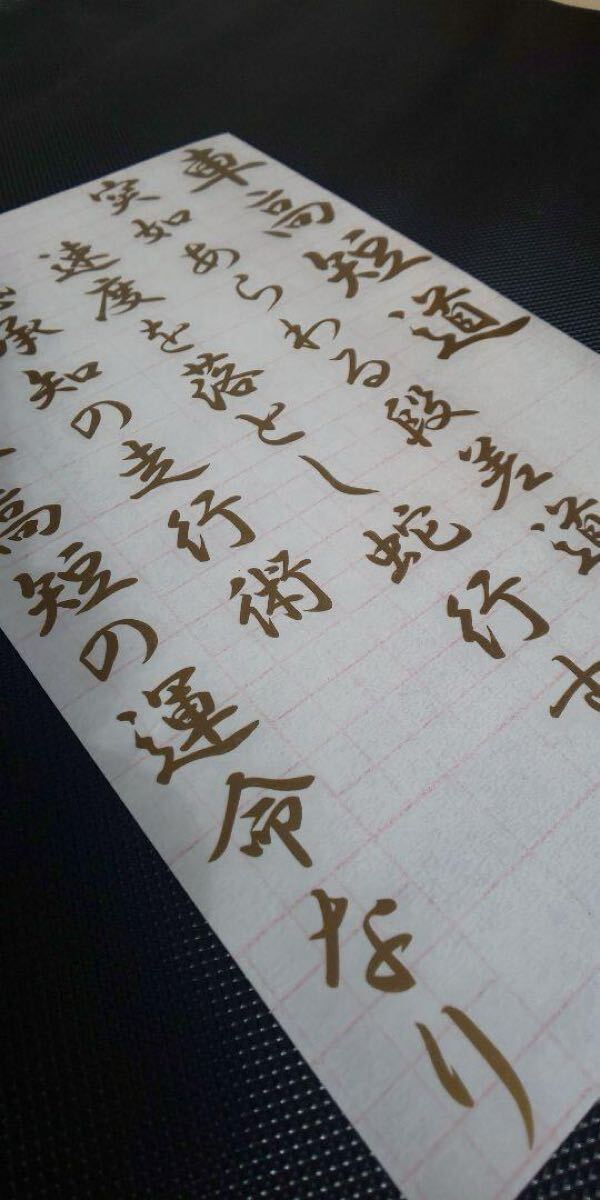 車高短道
突如あらわる段差道
速度を落とし蛇行せ
承知の走行術
高短の運命なり